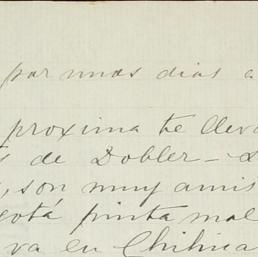 por unos dias a
proxima te lleva
de Dobler -
, son muy amis
gotá pinta mal
va en Chihua